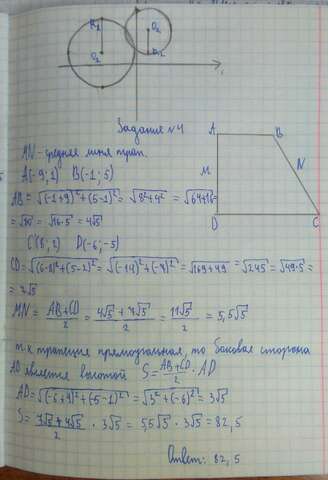 R1 O2
O1 R2
Задание №4
A B
MN - средняя линия трап.
A(-9;1) B(-1;5)
M N
AB = √(-1+9)²+(5-1)² = √8²+4² = √64+16 =
= √80 = √16·5 = 4√5
D C
C(8;2) D(-6;-5)
CD = √(6-8)²+(5-2)² = √(-14)²+(-7)² = √169+49 = √245 = √49·5 =
= 7√5
MN = AB+CD/2 = 4√5+7√5/2 = 11√5/2 = 5,5√5
т.к трапеция прямоугольная, то боковая сторона
AD является высотой S = AB+CD/2 · AD
AD = √(-6+9)²+(-5-1)² = √3²+(-6)² = 3√5
S = 7√5+4√5/2 · 3√5 = 5,5√5 · 3√5 = 82,5
Ответ: 82,5